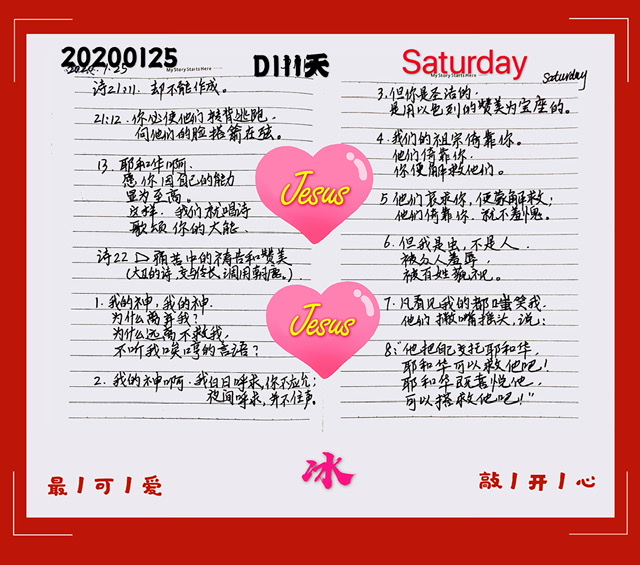 20200125
D111天
Saturday
2020.1.25
My Story Starts Here
My Story Starts Here
Saturday
诗21:11. 却不能作成。
21:12. 你必使他们转背逃跑,
向他们的脸搭箭在弦。
13. 耶和华啊,
愿你因自己的能力
显为至高。
这样, 我们就唱诗
歌颂你的大能.
诗22 ▷ 痛苦中的祷告和赞美
(大卫的诗, 交与伶长, 调用朝鹿。)
1. 我的神, 我的神.
为什么离弃我?
为什么远离不救我,
不听我唉哼的言语?
2. 我的神啊. 我白日呼求, 你不应允;
夜间呼求, 并不住声.
3. 但你是圣洁的.
是用以色列的赞美为宝座的。
4. 我们的祖宗倚靠你.
他们倚靠你.
你便解救他们。
5 他们哀求你, 便蒙解救;
他们倚靠你. 就不羞愧。
6. 但我是虫, 不是人.
被众人羞辱,
被百姓藐视。
7. 凡看见我的都嗤笑我.
他们撇嘴摇头, 说:
8: "他把自己交托耶和华,
耶和华可以救他吧!
耶和华既喜悦他,
可以搭救他吧!"
Jesus
Jesus
冰
最丨可丨爱
敲丨开丨心